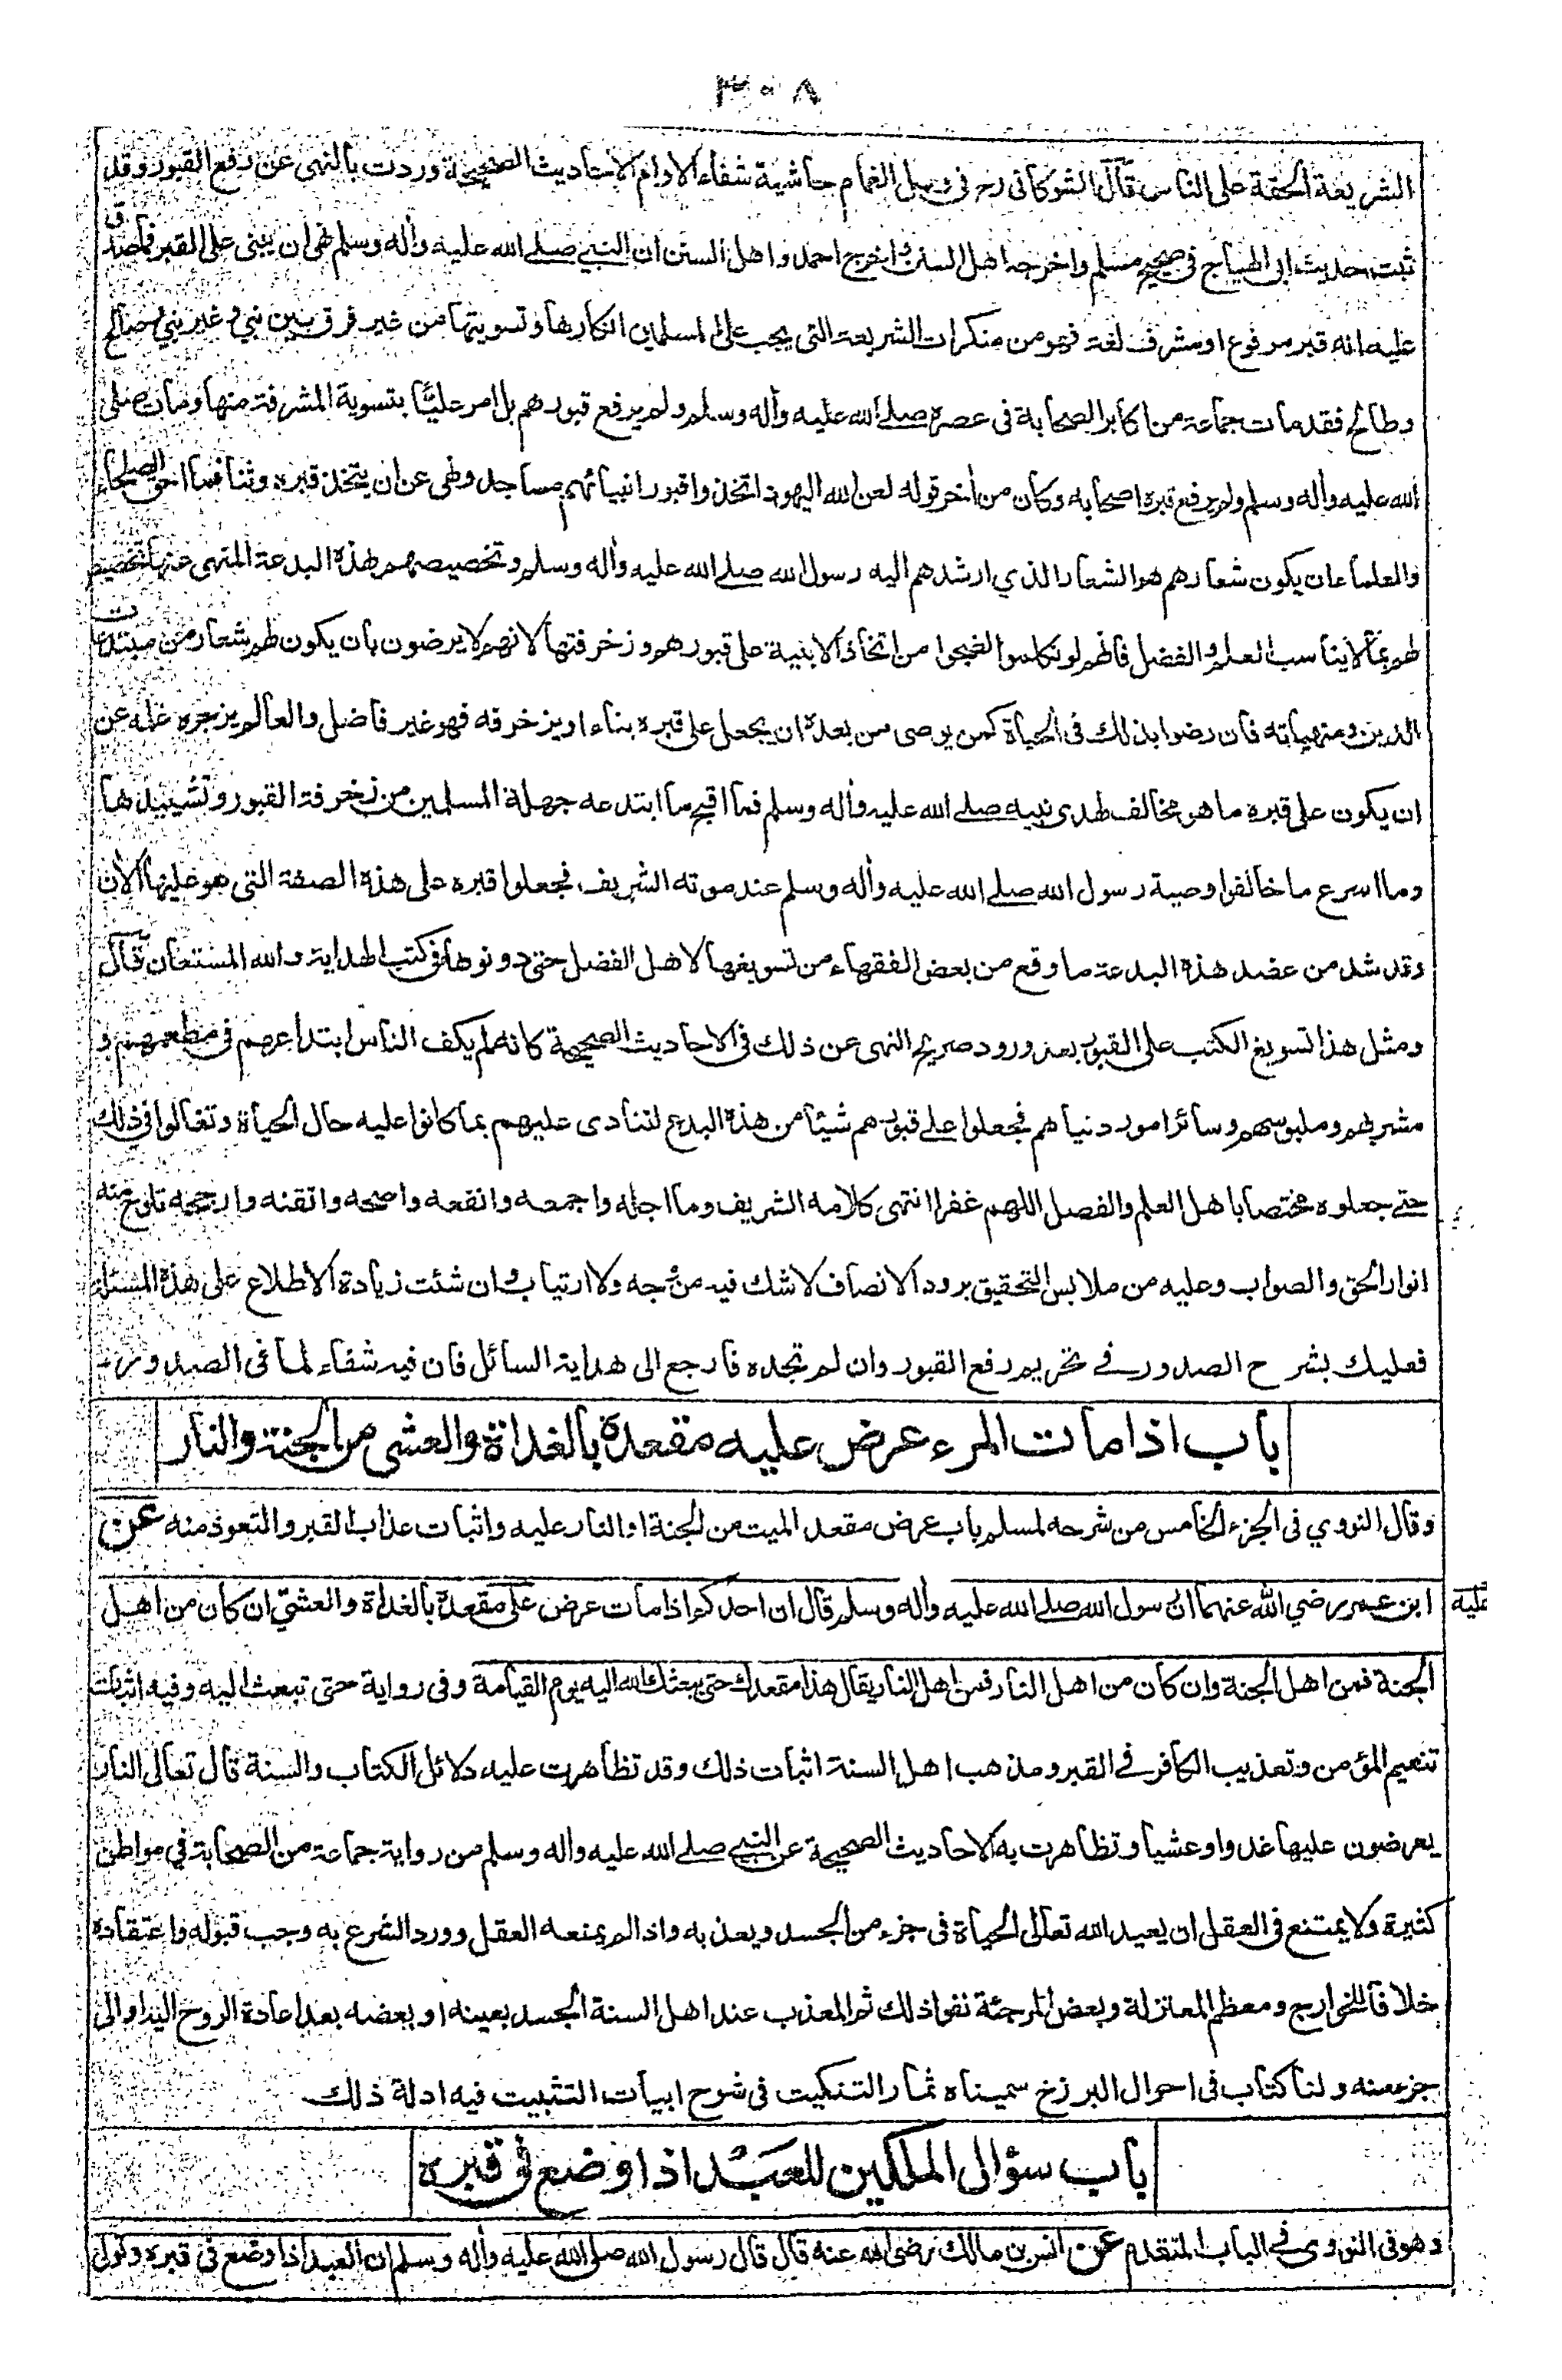 ٣٠٨
الشريعة الحقة على الناس قال الشوكاني رح في وبل الغمام حاشية شفاء الاوام الاحاديث الصحيحة وردت بالنهي عن رفع القبور وقد
ثبت حديث ابي الهياج في صحيح مسلم واخرجه اهل السنن واخرج احمد واهل السنن ان النبي صلے الله عليه وأله وسلم نهى ان يبنى على القبر فما صدق
عليه انه قبر مرفوع او مشرف لغة فهو من منكرات الشريعة التي يجب على المسلمين انكارها وتسويتها من غير فرق بين نبي وغير نبي وصالح
وطالح فقد مات جماعة من اكابر الصحابة في عصره صلے الله عليه وأله وسلم ولم يرفع قبورهم بل امر عليًّا بتسوية المشرفة منها ومات صلى
الله عليه وأله وسلم ولم يرفع قبره اصحابه وكان من أخر قوله لعن الله اليهود اتخذوا قبور انبيائهم مساجد ونهى عن ان يتخذ قبره وثنا فما احق الصلحاء
والعلماء ان يكون شعارهم هو الشعار الذي ارشدهم اليه رسول الله صلے الله عليه وأله وسلم وتخصيصهم بهذه البدعة المنهى عنها تخصيص
لهم بما لا يناسب العلم والفضل فانهم لو تكلموا لضجوا من اتخاذ الابنية على قبورهم وزخرفتها لانهم لا يرضون بان يكون لهم شعار من مبتدعات
الدين ومنهياته فان رضوا بذلك في الحياة كمن يوصى من بعده ان يجعل على قبره بناء او يزخرفه فهو غير فاضل والعالم يزجره علمه عن
ان يكون على قبره ما هو مخالف لهدى نبيه صلے الله عليه وأله وسلم فما اقبح ما ابتدعه جهلة المسلمين من زخرفة القبور وتشييدها
وما اسرع ما خالفوا وصية رسول الله صلے الله عليه وأله وسلم عند موته الشريف فجعلوا قبره على هذه الصفة التي هو عليها الأن
وقد شد من عضد هذه البدعة ما وقع من بعض الفقهاء من تسويغها لاهل الفضل حتى دونوها في كتب الهداية والله المستعان قال
ومثل هذا تسويغ الكتب على القبور بعد ورود صريح النهى عن ذلك في الاحاديث الصحيحة كانه لم يكف الناس ابتداعهم في مطعمهم و
مشربهم وملبوسهم وسائر امور دنياهم فجعلوا علے قبورهم شيئا من هذه البدع لتنادى عليهم بما كانوا عليه حال الحياة وتغالوا في ذلك
حتے جعلوه مختصا باهل العلم والفضل اللهم غفرا انتهى كلامه الشريف وما اجله واجمعه وانفعه واصحه واتقنه وارجحه تلوح منه
انوار الحق والصواب وعليه من ملابس التحقيق برود الانصاف لا شك فيه من وجه ولا ارتياب وان شئت زيادة الاطلاع على هذه المسئلة
فعليك بشرح الصدور في تحريم رفع القبور وان لم تجده فارجع الى هداية السائل فان فيه شفاء لما في الصدور
باب اذا مات المرء عرض عليه مقعده بالغداة والعشي من الجنة والنار
وقال النووي في الجزء الخامس من شرحه لمسلم باب عرض مقعد الميت من الجنة او النار عليه واثبات عذاب القبر والتعوذ منه عن
ابن عمر رضي الله عنهما ان رسول الله صلے الله عليه وأله وسلم قال ان احدكم اذا مات عرض عليه مقعده بالغداة والعشي ان كان من اهل
الجنة فمن اهل الجنة وان كان من اهل النار فمن اهل النار يقال هذا مقعدك حتى يبعثك الله اليه يوم القيامة وفي رواية حتى تبعث اليه وفيه اثبات
تنعيم المؤمن وتعذيب الكافر في القبر ومذهب اهل السنة اثبات ذلك وقد تظاهرت عليه دلائل الكتاب والسنة قال تعالى النار
يعرضون عليها غدوا وعشيا وتظاهرت به الاحاديث الصحيحة عن النبي صلے الله عليه وأله وسلم من رواية جماعة من الصحابة في مواطن
كثيرة ولا يمتنع في العقل ان يعيد الله تعالى الحياة في جزء من الجسد ويعذبه واذا لم يمنعه العقل وورد الشرع به وجب قبوله واعتقاده
خلافا للخوارج ومعظم المعتزلة وبعض المرجئة نفوا ذلك ثم المعذب عند اهل السنة الجسد بعينه او بعضه بعد اعادة الروح اليه او الى
جزء منه ولنا كتاب في احوال البرزخ سميناه ثمار التنكيت في شرح ابيات التثبيت فيه ادلة ذلك
باب سؤال الملكين للعبد اذا وضع في قبره
وهو في النووى في الباب المتقدم عن انس بن مالك رضي الله عنه قال قال رسول الله صلى الله عليه وأله وسلم ان العبد اذا وضع في قبره وتولى